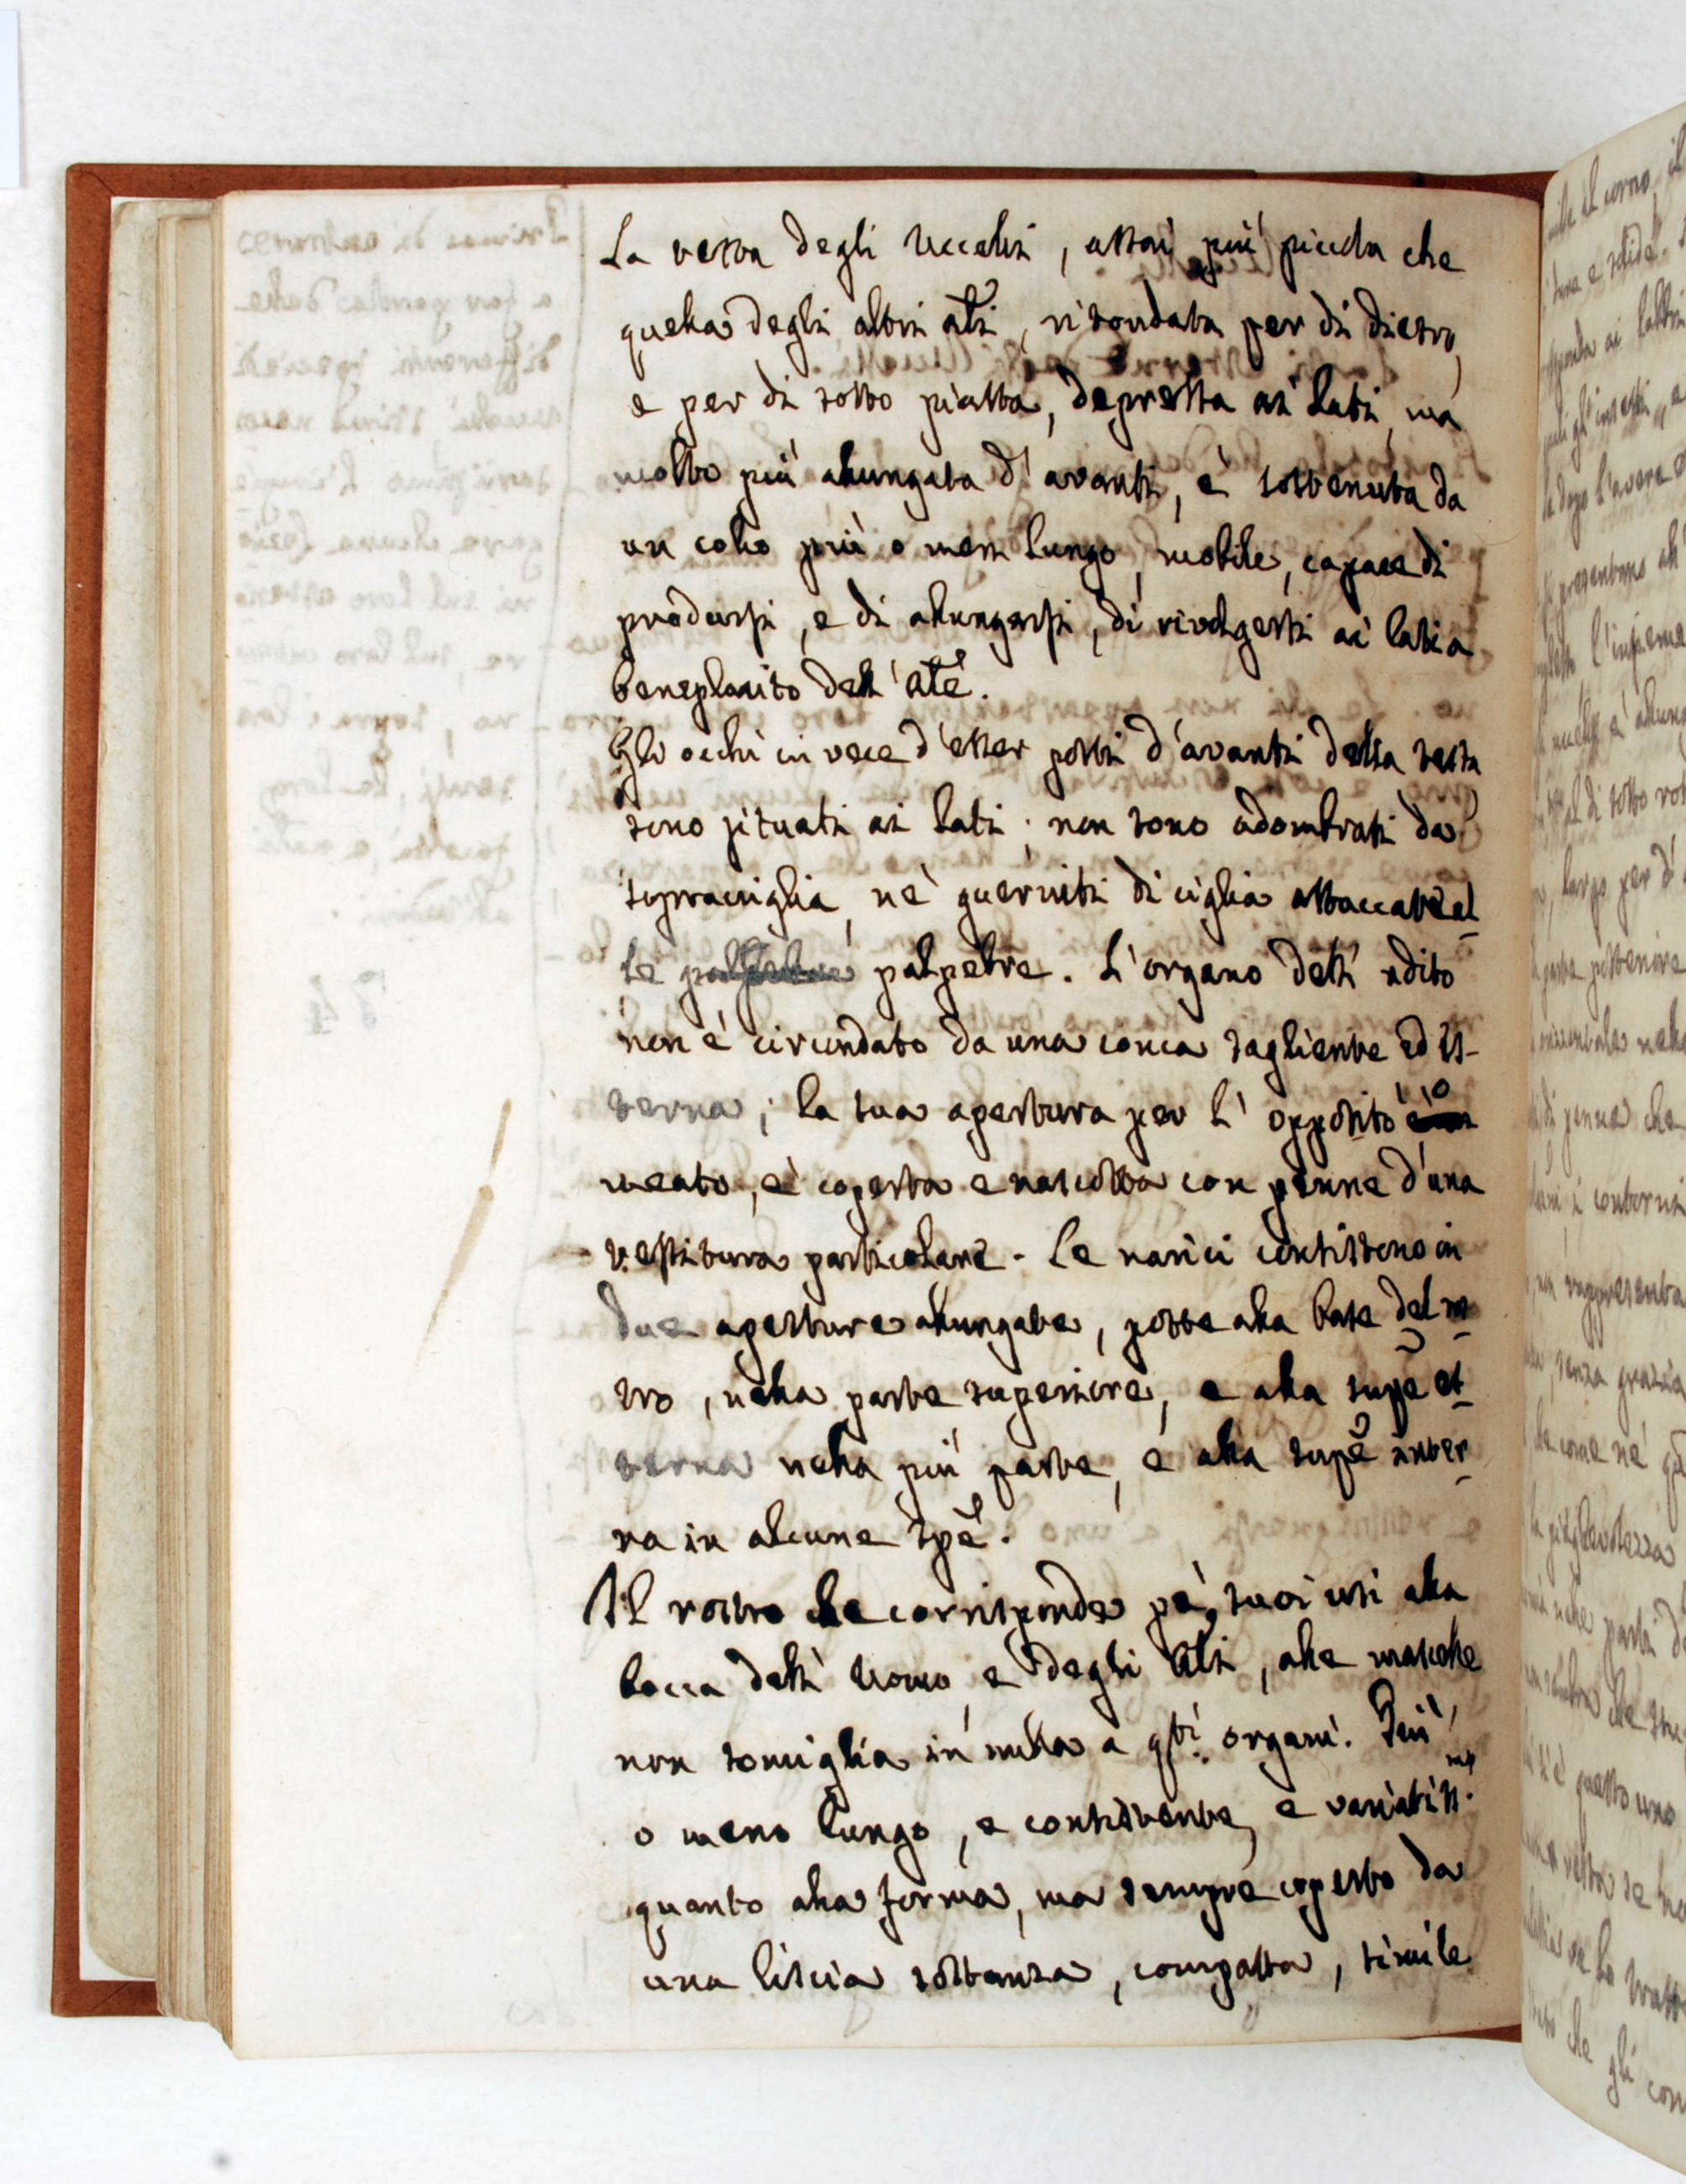 La testa degli Uccelli, assai più piccola che
quella degli altri ãli, ritondata per di dietro,
e per di sotto piatta, depressa ai lati, ma
molto più allungata d'avanti, è sostenuta da
un collo più o meno lungo, mobile, capace di
prodursi, e di allungarsi, di rivolgersi ai lati a
beneplacito dell'ãle.
Gli occhi in vece d'esser posti d'avanti della testa
sono situati ai lati; non sono adombrati da
sopraciglia, nè guerniti di ciglia attaccate al-
le palpebre. L'organo dell'udito
non è circondato da una conca sagliente ed es-
terna; la sua apertura per l'opposito è o
meato, è coperta e nascosta con penne d'una
testitura particolare. Le narici consistono in
due aperture allungate, poste alla base del ros-
tro, nella parte superiore, e alla supẽ es-
terna nella più parte, e alla supẽ inter-
na in alcune spẽ.
Il rostro che corrisponde pe' suoi usi alla
bocca dell'Uomo, e degli ãli, alle mascelle
non somiglia in nulla a qsti organi. Più,
o meno lungo, e consistente, e variatiss.mo
quanto alla forma, ma sempre coperto da
una liscia sostanza, compatta, simile